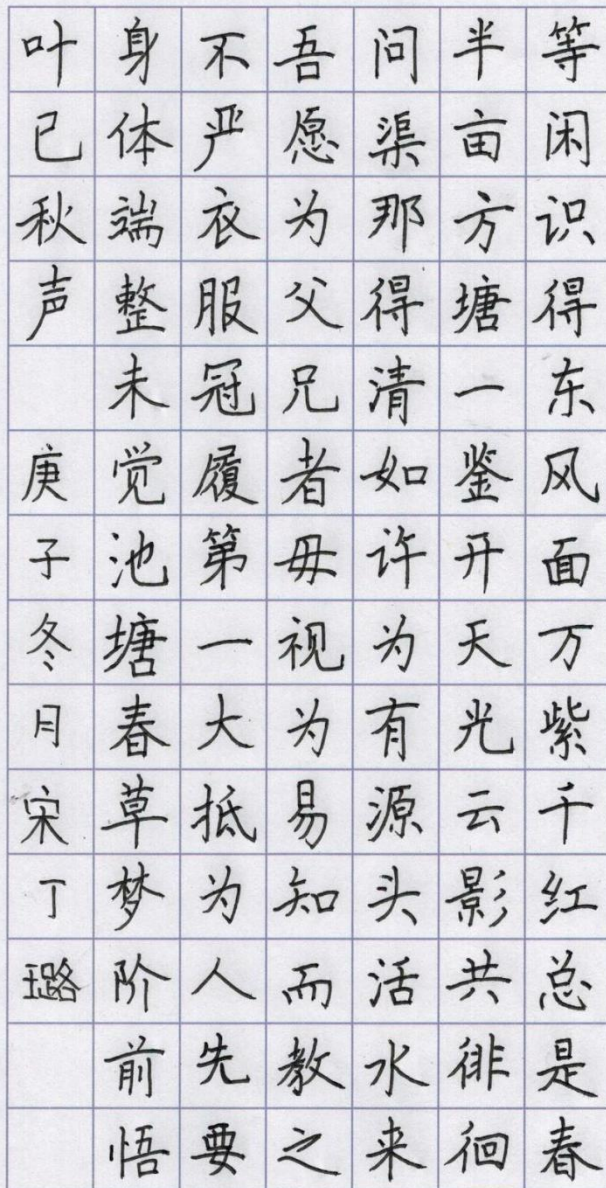 等闲识得东风面万紫千红总是春
半亩方塘一鉴开天光云影共徘徊
问渠那得清如许为有源头活水来
吾愿为父兄者毋视为易知而教之
不严衣服冠履第一大抵为人先要
身体端整未觉池塘春草梦阶前悟
叶已秋声 庚子冬月宋丁璐